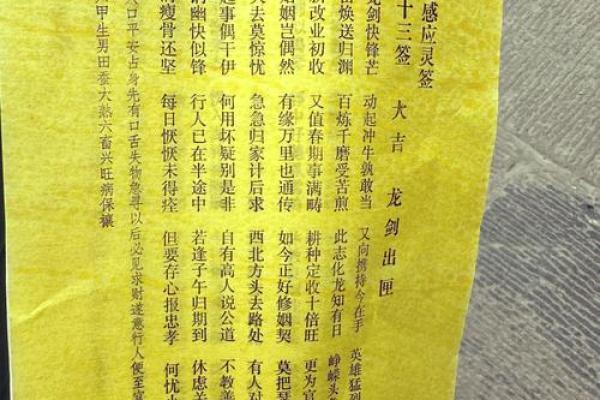 感应灵签
十三签 大吉 龙剑出匣
剑快锋芒 动起冲牛孰敢当 又向携持今在手 英雄猛烈
焕送归渊 百炼千磨受苦煎 此志化龙知有日 峥嵘头
新改业初收 又值春期事满畴 耕种定收十倍旺 更为官
姻岂偶然 有缘万里也通传 如今正好修姻契 莫把琴
失去莫惊忧 急急归家计后求 西北方头去路处 有人对
起事偶干伊 何用坏疑别是非 自有高人说公道 不教善
幽快似锋 行人已在半途中 若逢子午归期到 休虑关
瘦骨还坚 每日恹恹未得痊 但要存心报忠孝 何忧
口平安占身先有口舌失物急寻以后必见求财遂意行人便至官
甲生男田蚕大熟六畜兴旺病保禳